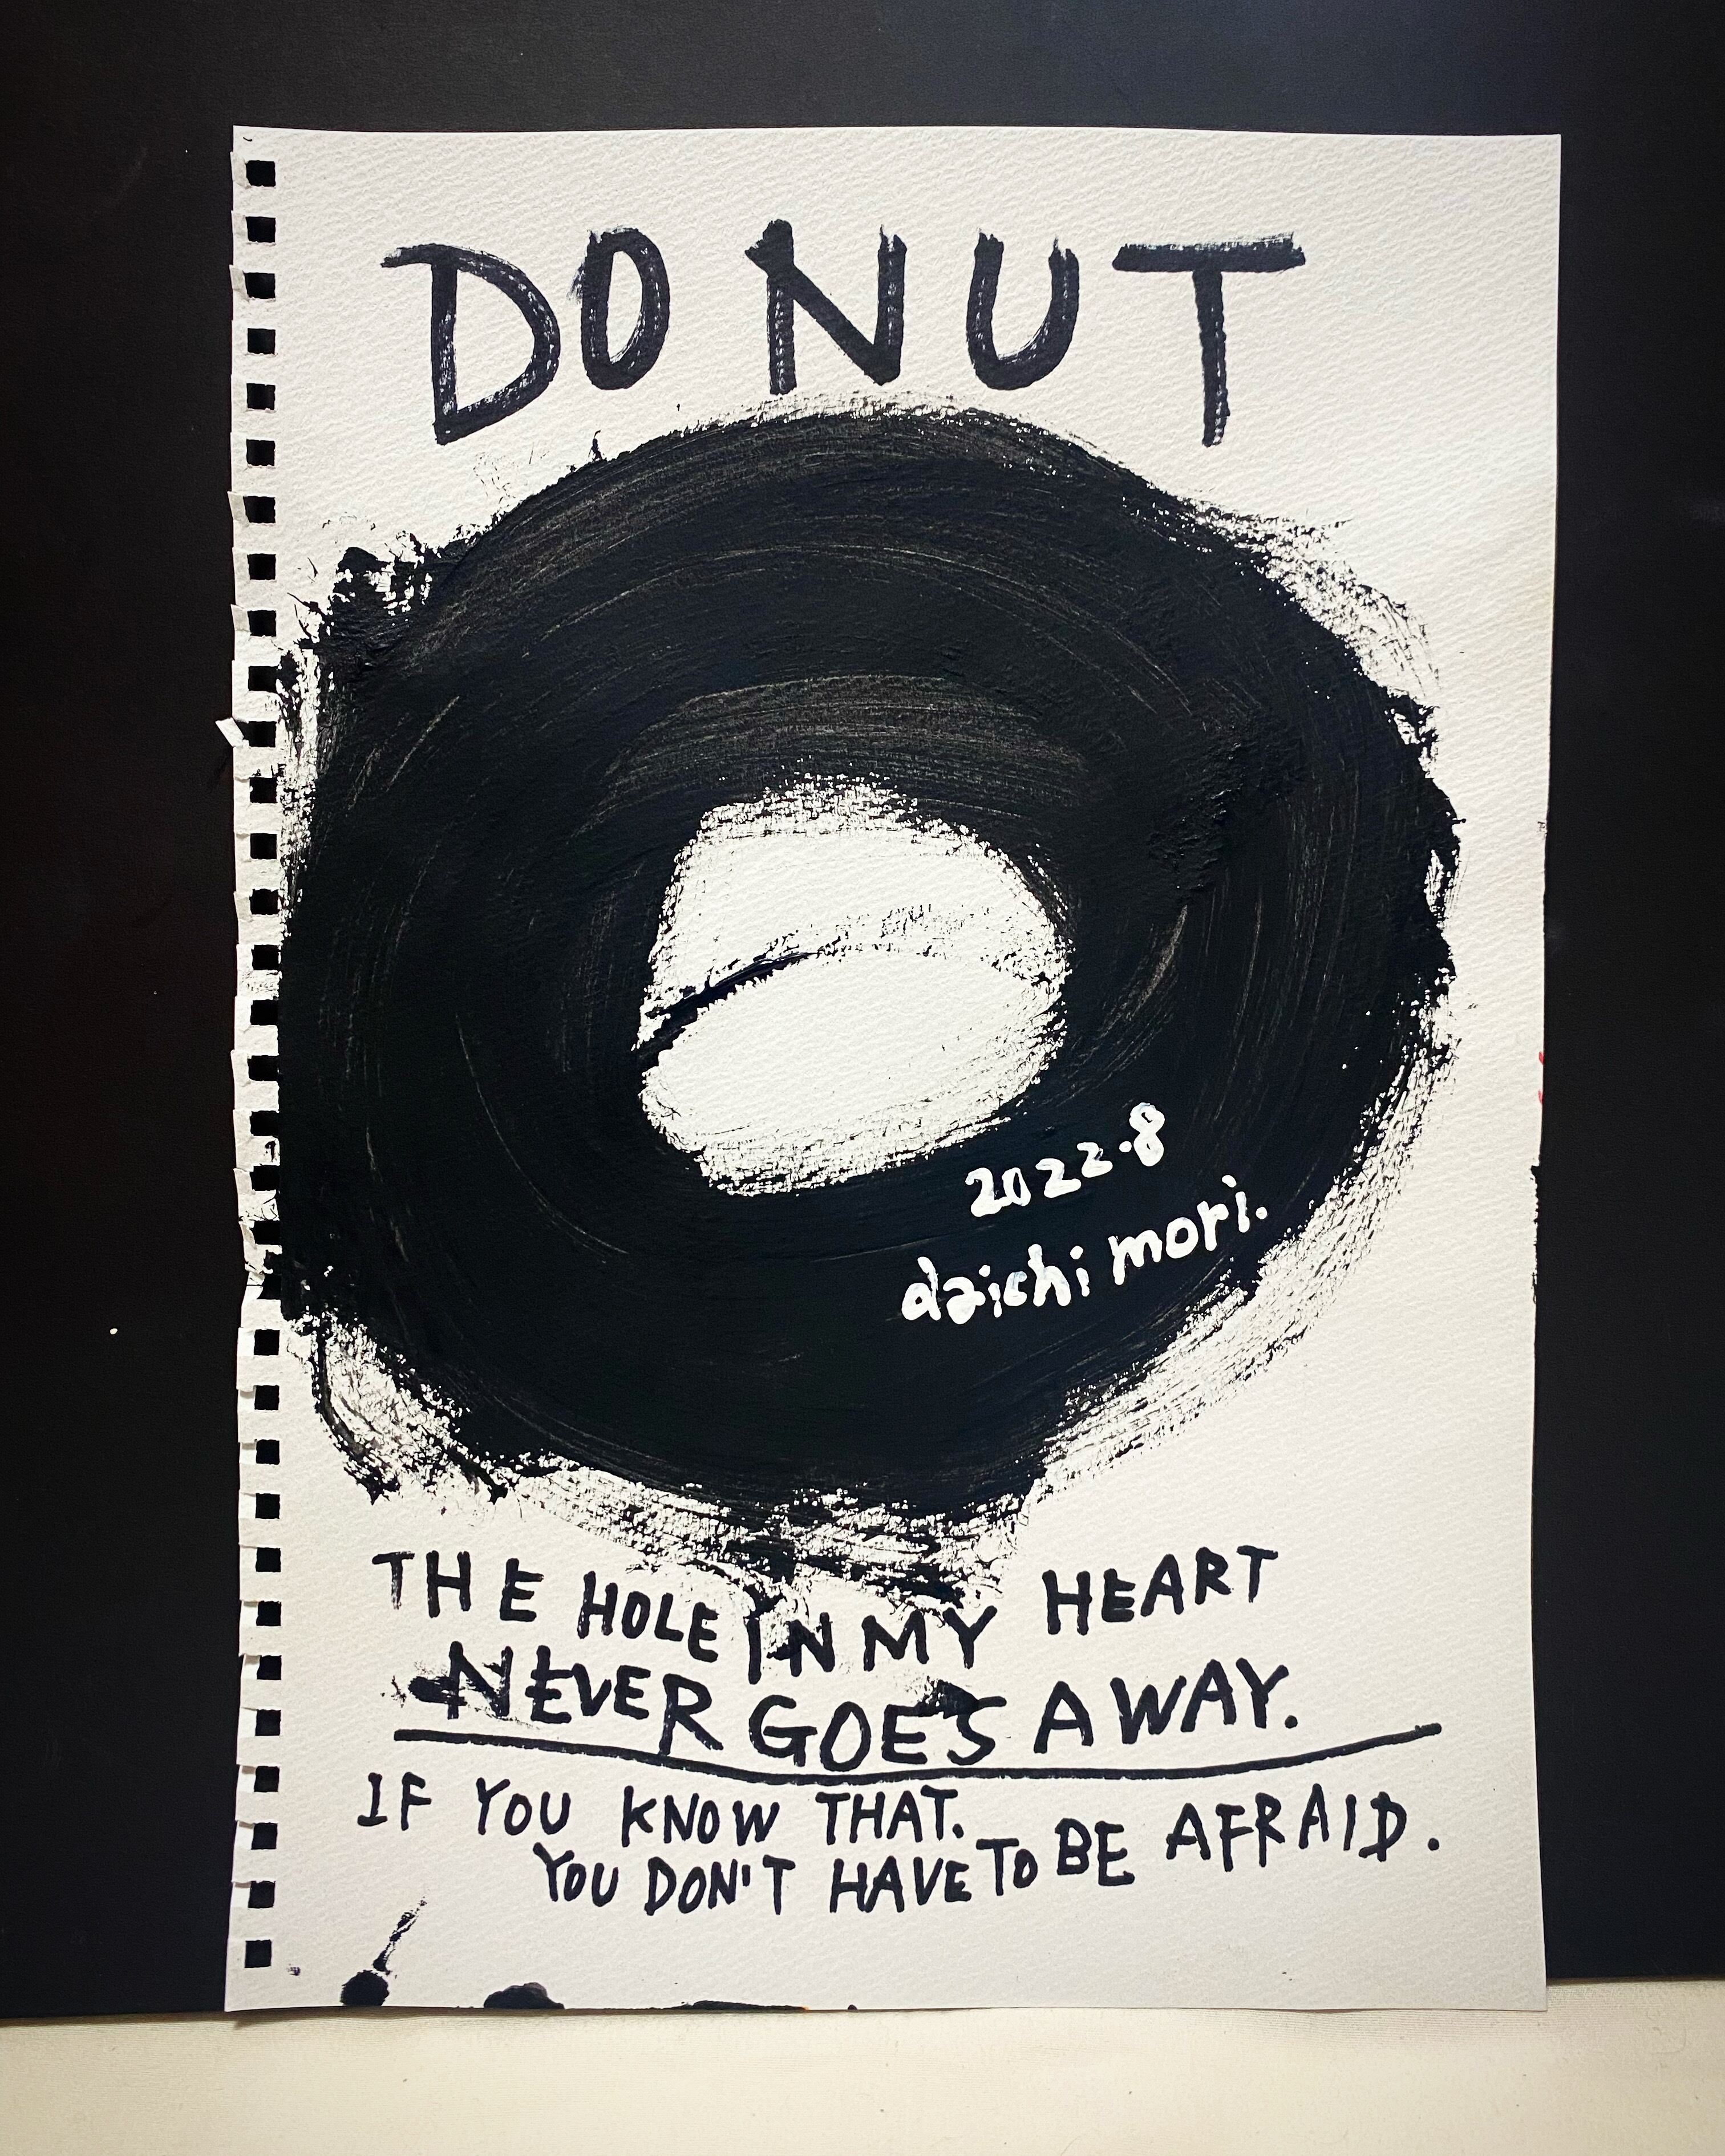 DONUT
2022.8
daichi mori.
THE HOLE IN MY HEART
NEVER GOES AWAY.
IF YOU KNOW THAT.
YOU DON'T HAVE TO BE AFRAID.